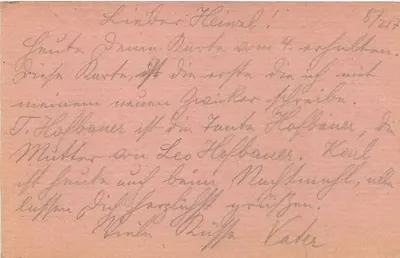 Lieber Heinzl!
Heute Deine Karte vom 4. erhalten.
Diese Karte, ist die erste die ich mit
meinem neuen Zwicker schreibe.
T. Hofbauer ist die Tante Hofbauer, die
Mutter von Leo Hofbauer. Karl
ist heute auch beim Nachtmahl, alle
lassen Dich herzlichst grüßen.
Viele Küsse Vater